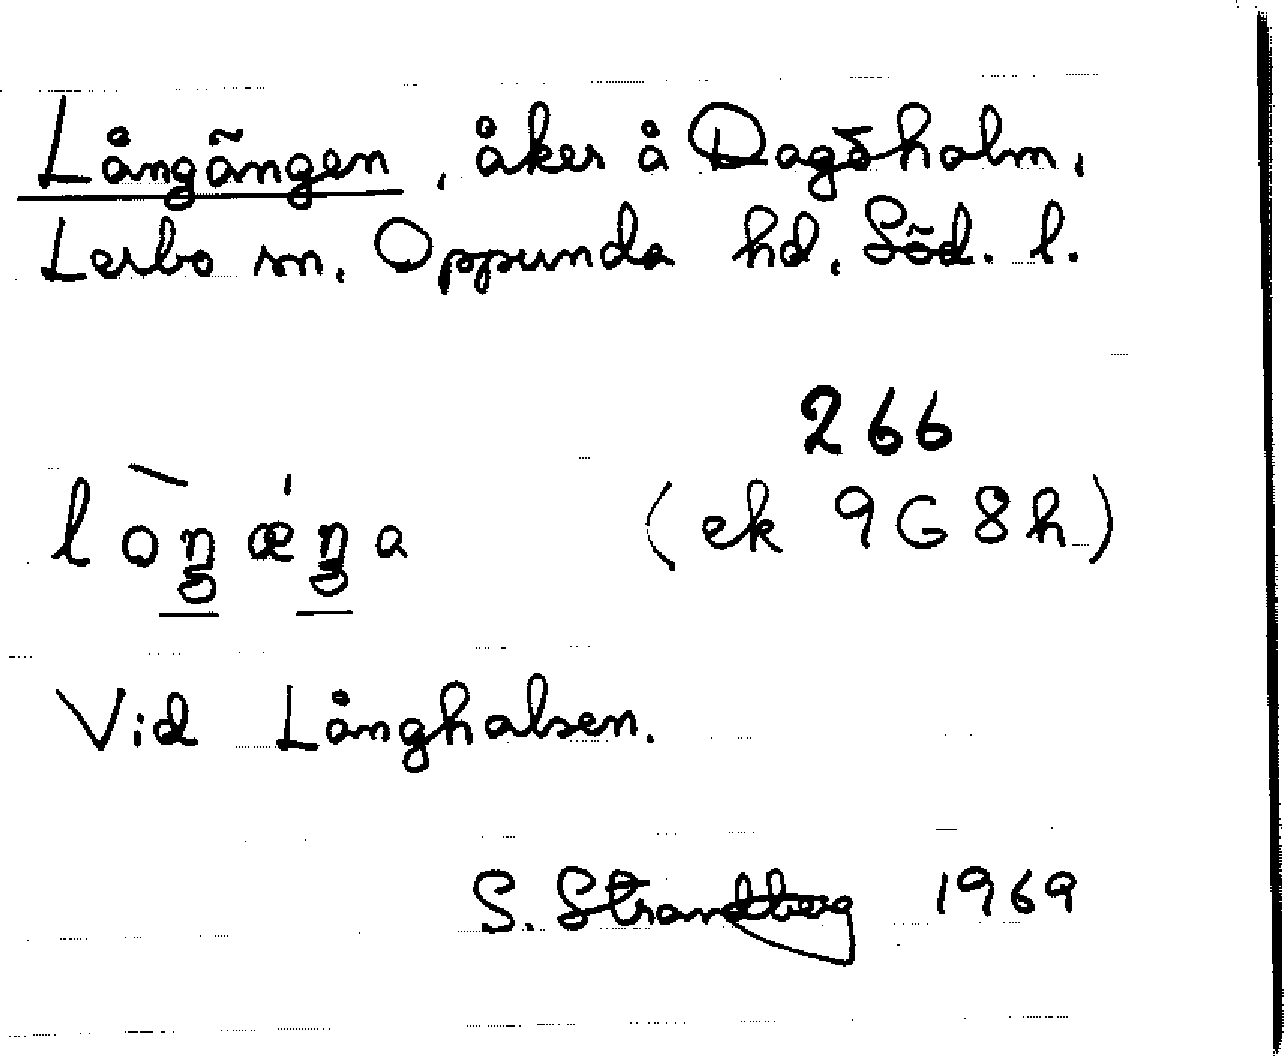 Långängen, åker å Dagsholm,
Lerbo sn, Oppunda hd, Söd. l.
266
loᷠŋǽŋa (ek 9G8h)
Vid Långhalsen.
S. Strandberg 1969